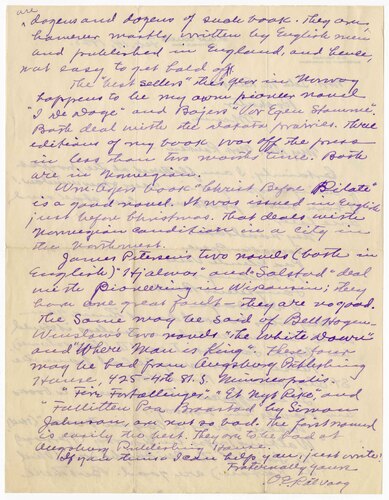 are
dozens and dozens of such book. They are
however mostly written by English men
and published in England, and hence,
not easy to get hold of.
The "best sellers" this year in Norway
happens to be my own pioneer novel
"I De Dage" and Bojer's "Vor Egen Stamme".
Both deal with the Dakota prairies. Three
editions of my book was off the press
in less than two months time. Both
are in Norwegian.
Wm. Ager's book "Christ Before Pilate"
is a good novel. It was issued in English
just before Christmas. That deals with
Norwegian condition in a city in
the Northwest.
James Petersen's two novels (both in
English) "Hjalmar" and "Solstad" deal
with Pioneering in Wisconsin; they
have one great fault – they are no good.
The same may be said of Bell Hagen-
Winslow's two novels "The White Dawn"
and "Where Man is King". These four
may be had from Augsburg Publishing
House, 425-4th St. S. Minneapolis.
"Fire Fortællinger", "Et Nyt Rike", and
"Fallitten Paa Braastad" by Simon
Johnson, are not so bad. The first named
is easily the best. They are to be had at
Augsburg Publishing House.
If you think I can help you, just write!
Fraternally yours
O E Rölvaag